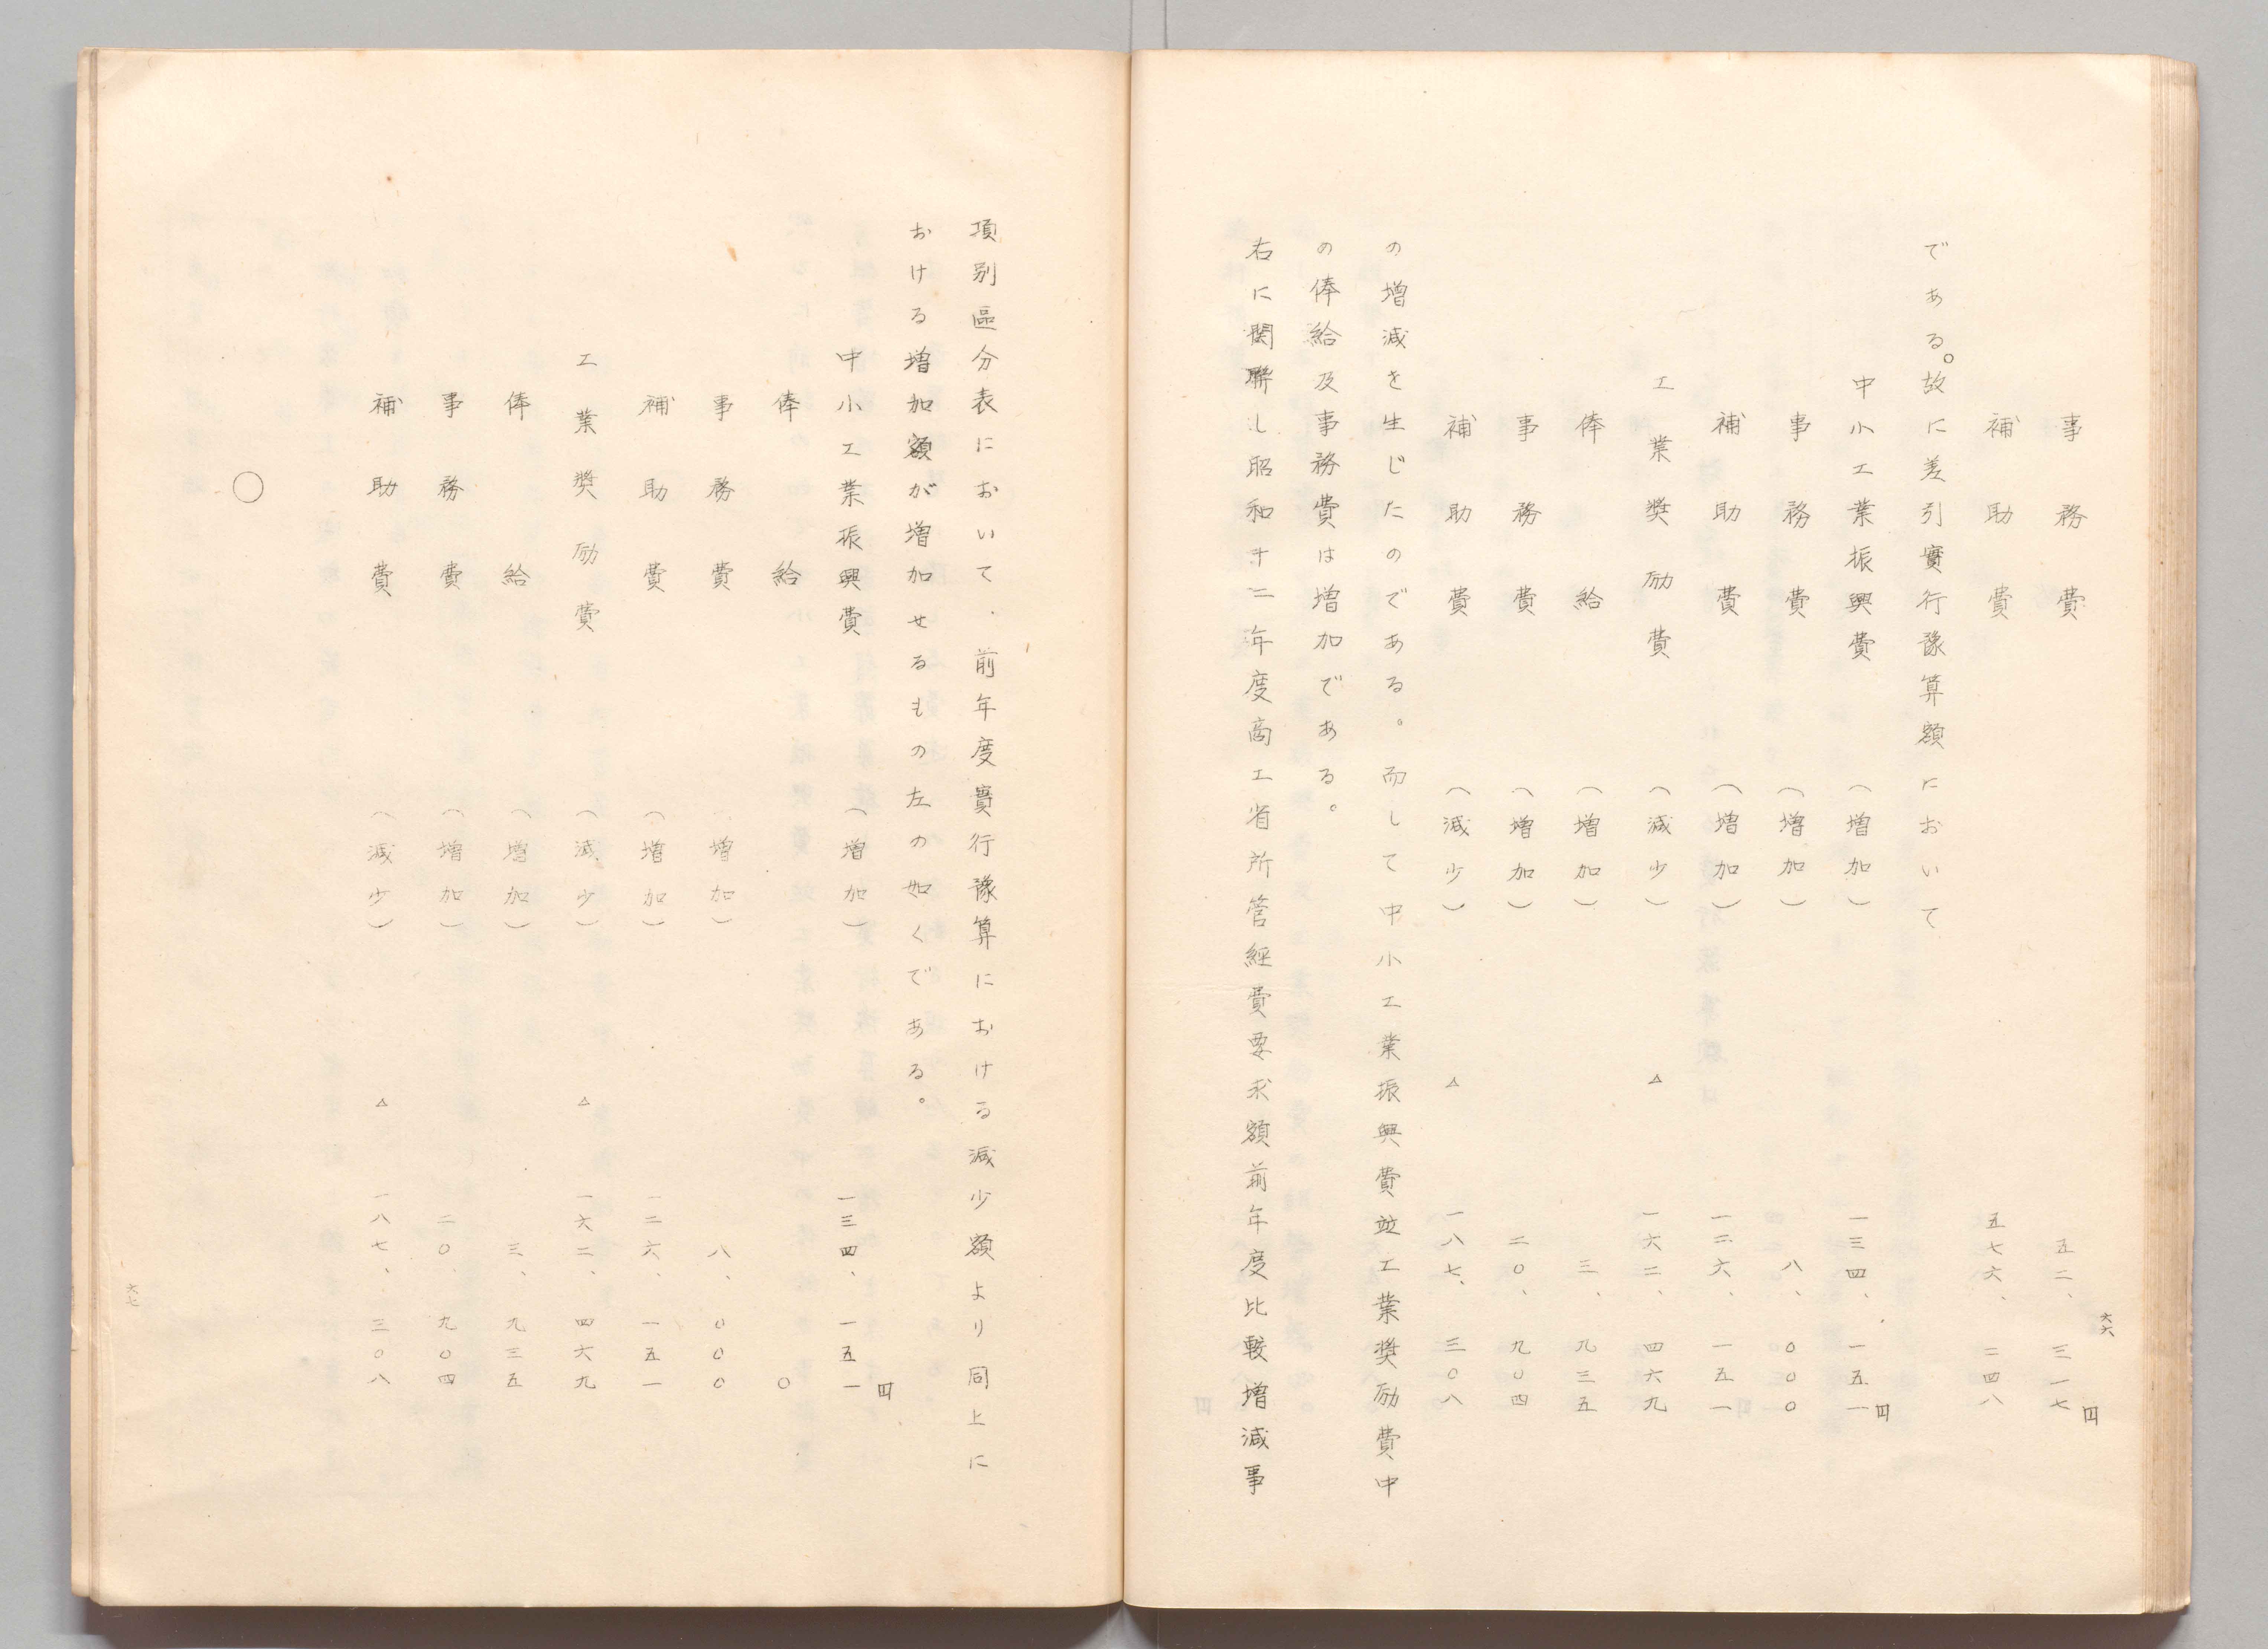 六六
事務費 五二、三一七円
補助費 五七六、二四八
である。故に差引實行豫算額において
中小工業振興費 (増加) 一三四、一五一円
事務費 (増加) 八、〇〇〇
補助費 (増加) 一二六、一五一
工業奬励費 (減少) △ 一六二、四六九
俸給 (増加) 三、九三五
事務費 (増加) 二〇、九〇四
補助費 (減少) △ 一八七、三〇八
の増減を生じたのである。而して中小工業振興費並工業奬励費中
の俸給及事務費は増加である。
右に関聯し昭和十二年度商工省所管経費要求額前年度比較増減事
項別區分表において、前年度實行豫算における減少額より同上に
おける増加額が増加せるもの左の如くである。
中小工業振興費 (増加) 一三四、一五一円
俸給 〇
事務費 (増加) 八、〇〇〇
補助費 (増加) 一二六、一五一
工業奬励費 (減少) △ 一六二、四六九
俸給 (増加) 三、九三五
事務費 (増加) 二〇、九〇四
補助費 (減少) △ 一八七、三〇八
〇
六七